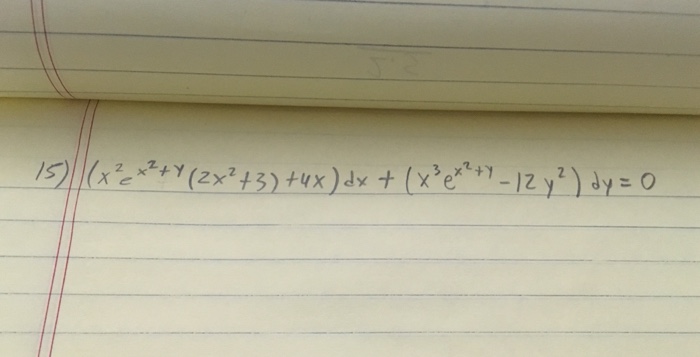 15) (x²e^(x²+y) (2x²+3) +4x) dx + (x³e^(x²+y) -12y²) dy = 0